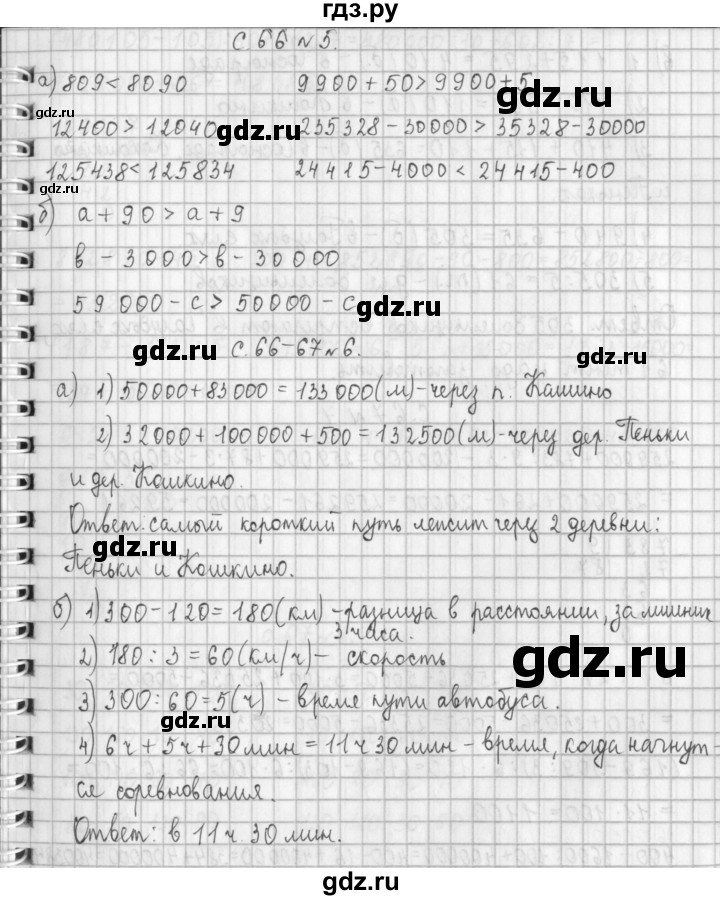 гдз.ру
С. 66 № 5.
а) 809 < 8090 9900 + 50 > 9900 + 5
12400 > 12040 235328 - 30000 > 35328 - 30000
125438 < 125834 24415 - 4000 < 24415 - 400
б) а + 90 > а + 9
в - 3000 > в - 30000
59000 - с > 50000 - с
С. 66-67 № 6.
а) 1) 50000 + 83000 = 133000 (м) - через п. Кашино
2) 32000 + 100000 + 500 = 132500 (м) - через дер. Пеньки
и дер. Кошкино.
Ответ: самый короткий путь лежит через 2 деревни:
Пеньки и Кошкино.
б) 1) 300 - 120 = 180 (км) - разница в расстоянии, за лишних
3 часа.
2) 180 : 3 = 60 (км/ч) - скорость
3) 300 : 60 = 5 (ч) - время пути автобуса.
4) 6ч + 5ч + 30 мин = 11ч 30 мин - время, когда начнут-
ся соревнования.
Ответ: в 11ч. 30 мин.
gdz.ru
gdz.ru
gdz.ru
gdz.ru
gdz.ru
gdz.ru
gdz.ru
gdz.ru
gdz.ru
gdz.ru
gdz.ru
gdz.ru
gdz.ru